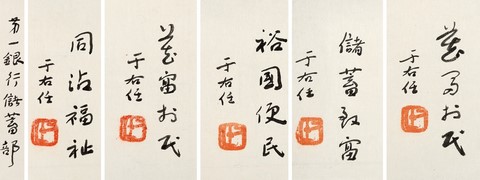 藏富於民
于右任
儲蓄致富
于右任
裕國便民
于右任
藏富於民
于右任
同沾福祉
于右任
第一銀行儲蓄部